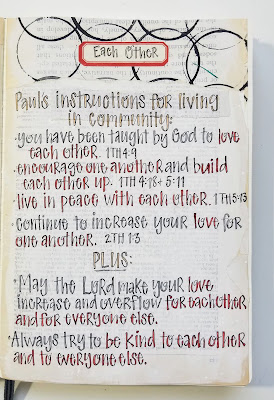 Each Other
Paul's instructions for living
in community:
•you have been taught by God to love
each other. 1TH 4:9
•encourage one another and build
each other up. 1TH 4:18 + 5:11
•live in peace with each other. 1TH 5:13
•continue to increase your love for
one another. 2TH 1:3
PLUS:
•May the Lord make your love
increase and overflow for each other
and for everyone else.
•Always try to be kind to each other
and to everyone else.